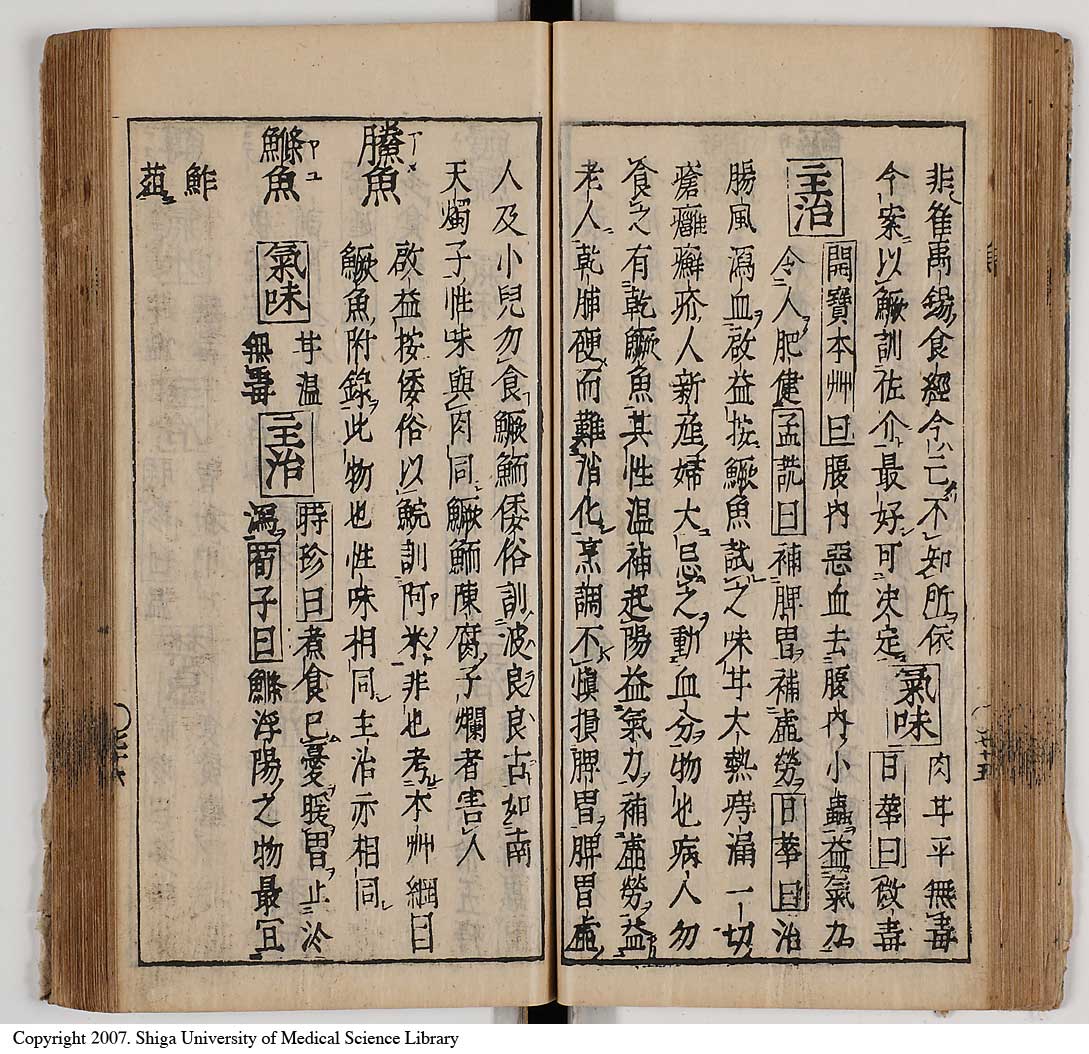 非崔禹錫食經今亡不知所依
今案以鱖訓佐介最好可决定 氣味 肉甘平無毒 日華曰微毒
主治 開寶本艸曰腹内惡血去腹内小蟲益氣力
令人肥健孟詵曰補脾胃補虚勞日華曰治
腸風瀉血啟益按鱖魚試之味甘大熱痔漏一切
瘡癰癬疥人新産婦大忌之動血分物也病人勿
食之有乾鱖魚其性温補起陽益氣力補虚勞益
老人乾脯硬而難消化烹調不慎損脾胃脾胃虚
人及小兒勿食鱖鮞倭俗訓波良良古如南
天燭子性味與肉同鱖鮞陳腐子爛者害人
鰧魚 啟益按倭俗以鯇訓阿米非也考本艸綱目
鱖魚附錄此物也性味相同主治亦相同
鰷魚 氣味 甘温無毒 主治 時珍曰煮食已憂暖胃止冷
瀉荀子曰鰷浮陽之物最宜
鮓
葅
七十五
七十六
Copyright 2007. Shiga University of Medical Science Library